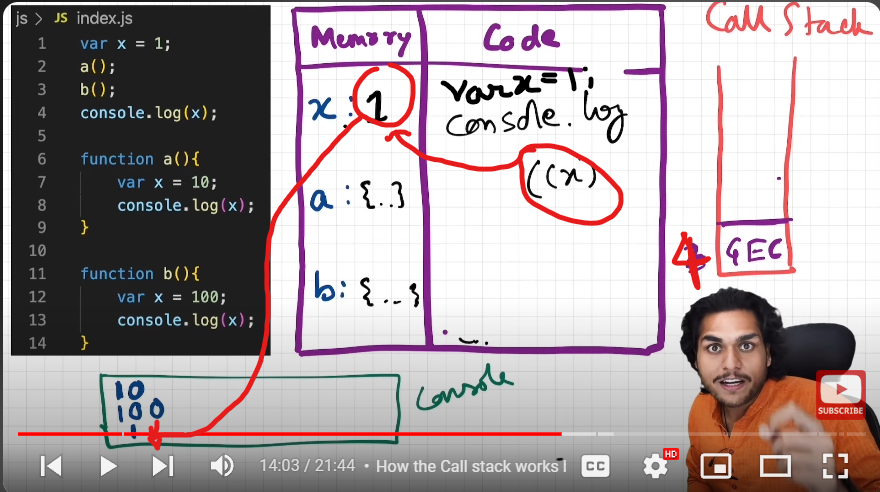 js > JS index.js
1 var x = 1;
2 a();
3 b();
4 console.log(x);
5
6 function a(){
7 var x = 10;
8 console.log(x);
9 }
10
11 function b(){
12 var x = 100;
13 console.log(x);
14 }
Memory Code
x : 1 var x = 1;
console.log
((x)
a : {..}
b : {...}
Call Stack
4 GEC
10
100
1
Console
SUBSCRIBE
14:03 / 21:44 • How the Call stack works
CC
HD